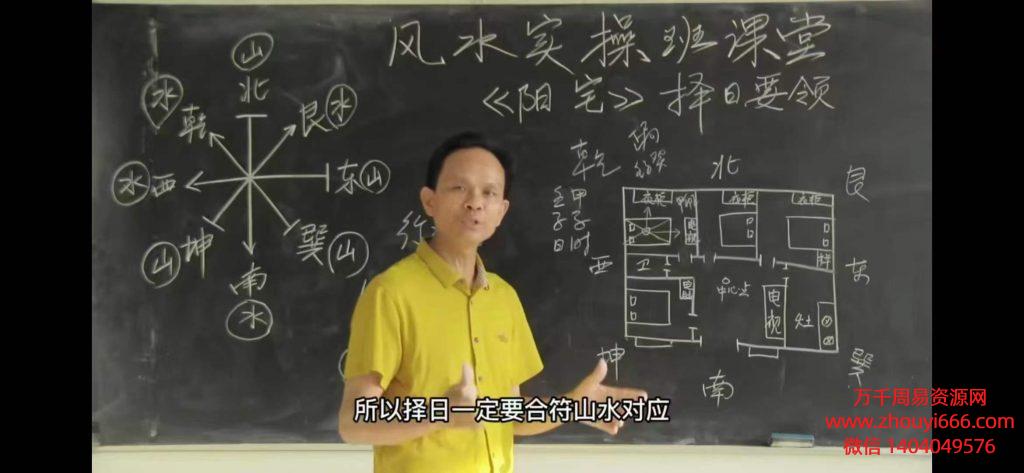 风水实操班课堂
《阳宅》择日要领
山
北
水
乾
艮水
水西
东山
山坤
巽山
南
水
乾
北
艮
壬子日
甲子时
西
东
衣柜
衣柜
衣柜
电视
卫
中心点
电视
灶
坤
南
巽
所以择日一定要合符山水对应
万千周易资源网
www.zhouyi666.com
微信 1404049576